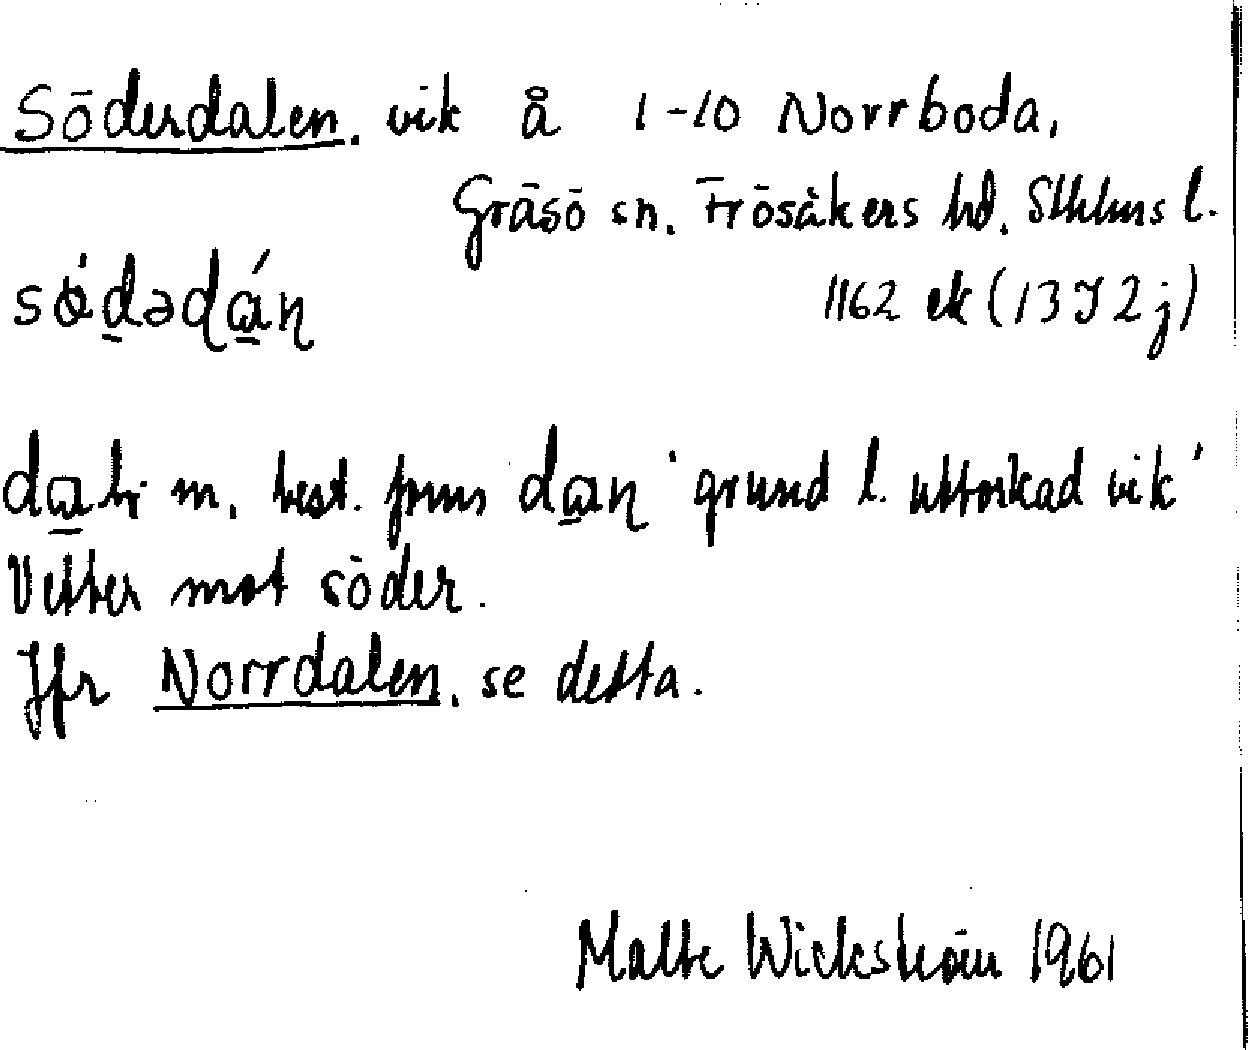 Söderdalen, vik å 1-10 Norrboda,
Gräsö sn. Frösåkers hd. Sthlms l.
sǿdədán 1162 ek (13I2j)
m. best. form dan 'grund l. uttorkad vik'
Vetter mot söder.
Jfr Norrdalen, se detta.
Malte Wickström 1961